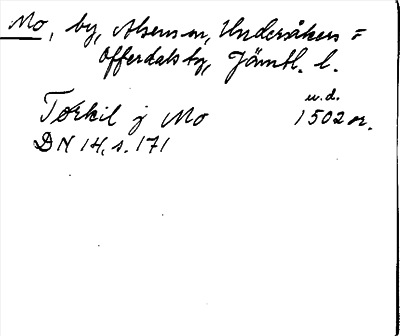 Mo, by, Alsens sn, Undersåkers =
Offerdals tg, Jämtl. l.
u. d.
Torkil j Mo 1502 or.
DN 14, s. 171